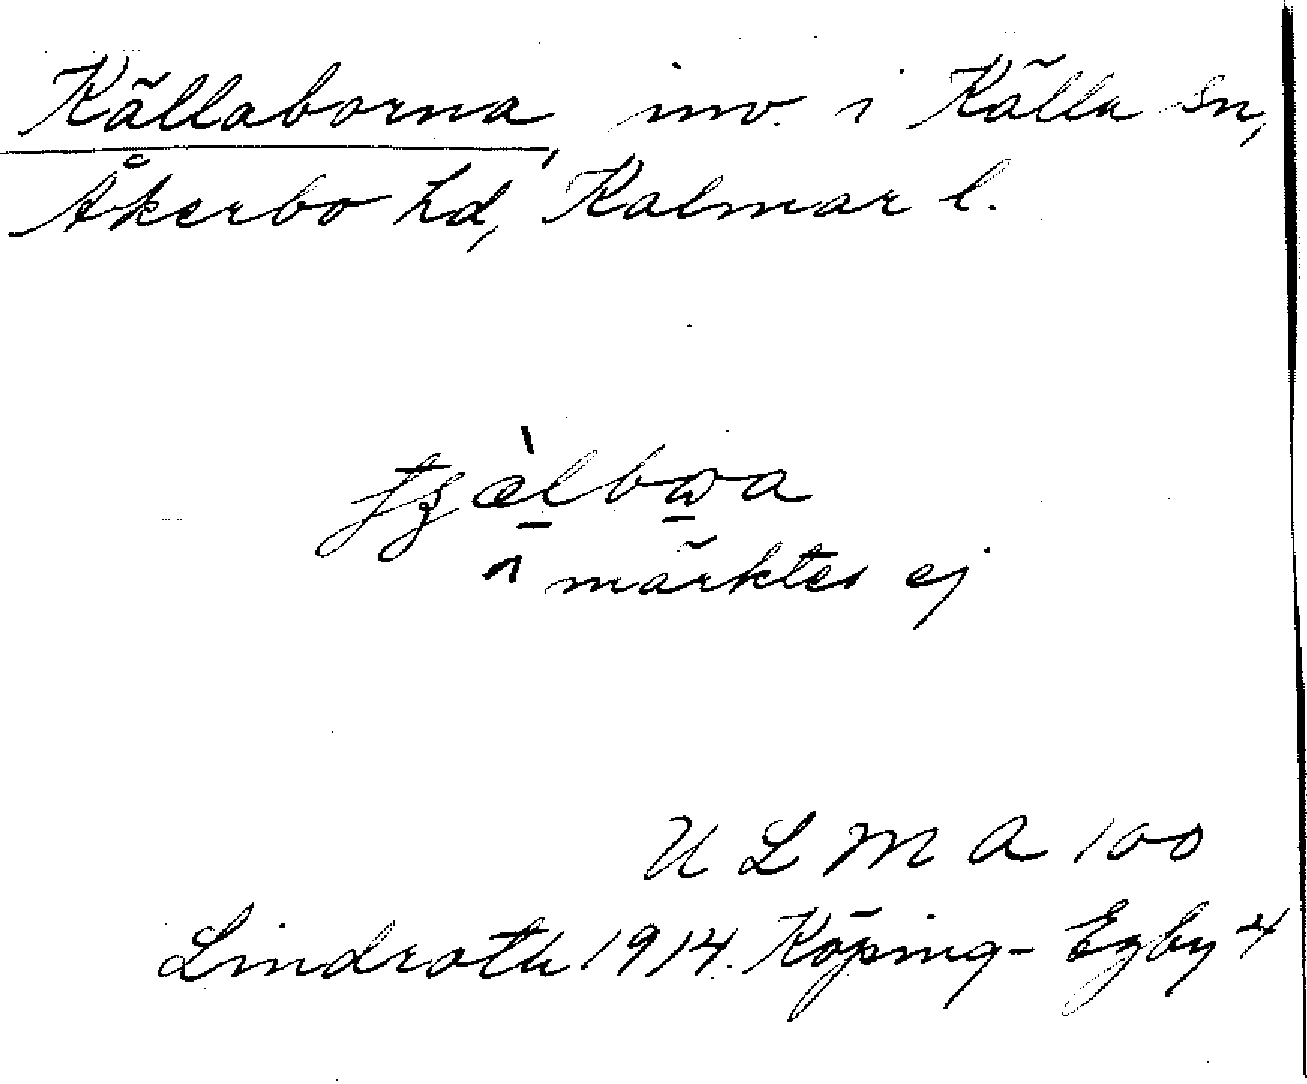 Källaborna, inv. i Källa sn,
Åkerbo hd, Kalmar l.
märktes ej
U L M A 100
Lindroth 1914. Köping-Egby 4